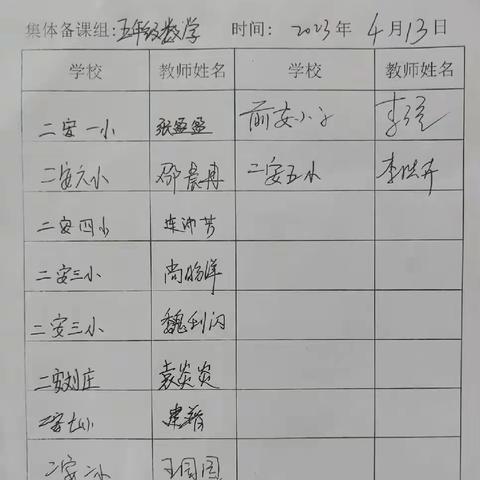 集体备课组:五年级数学 时间: 2023年4月13日
学校 教师姓名 学校 教师姓名
二安一小 张盈盈 前安小学 李滢
二安六小 邵晨冉 二安五小
二安四小
二安三小
二安三小 魏利闪
二安刘庄 袁炎炎
二安七小
二安二小 王园园